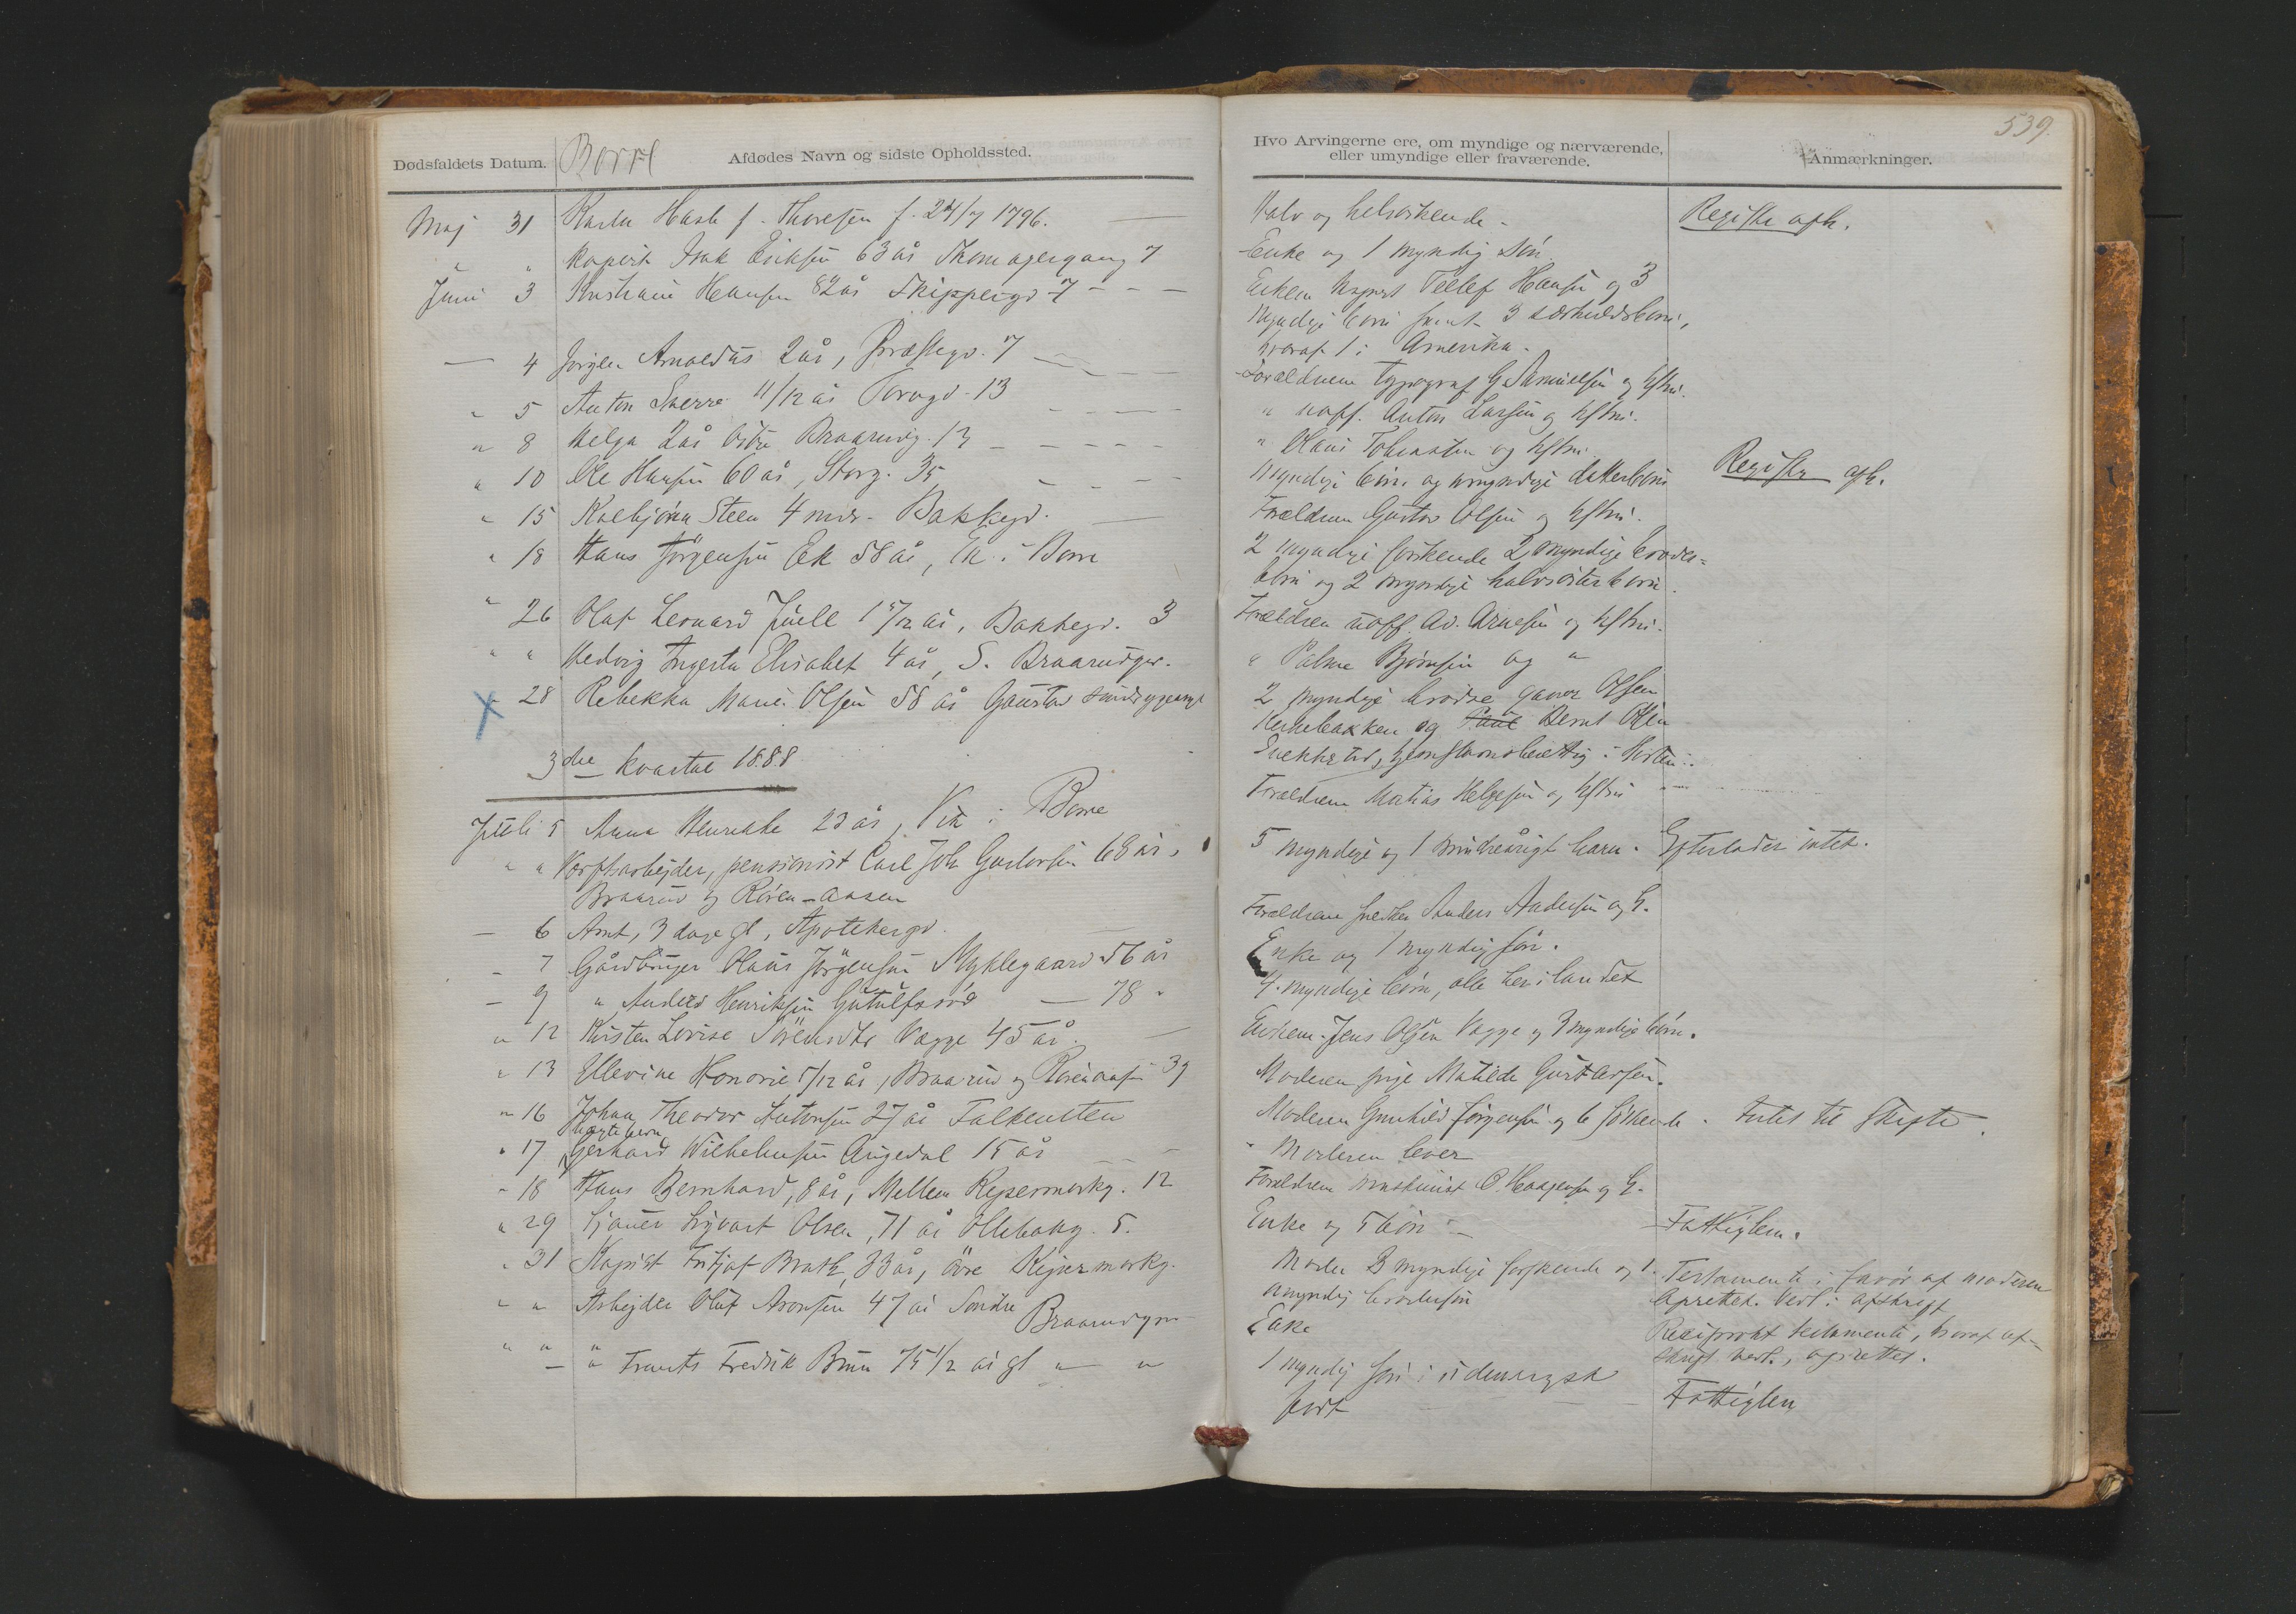 539.
Dødsfaldets Datum.
Borre
Afdødes Navn og sidste Opholdssted.
Maj 31 Hash f. Thoresen f. 24/7 1796.
" " Isak Eriksen 63 år Skomagergang 7
Juni 3 Hansen 82 år Skippergd 7 - - -
— 4 Jørgen Arnoldus 2 år, Præstegd. 7
" 5 Anton Sverre 11/12 år Torvgd. 13
" 8 Helga 2 år Østre Braarudg. 13
" 10 Ole Hansen 60 år, Storg. 35
" 15 Kolbjørn Steen 4 mdr. Bakkegd.
" 18 Hans Jörgensen Ek 58 år, Ek i Borre
" 26 Olaf Leonard Juell 1 5/12 år, Bakkegd. 3
" " Hedvig Elisabet 4 år, S. Braarudgd.
" 28 Rebekka Marie Olsen 58 år Gaustad sindssygeasyl
3die kvartal 1888
Juli 5 Anna Henrikke 23 år, Vik i Borre
" " Verftsarbejder, pensionist Carl Joh Gustavsen 68 år,
Braarud og Røren-aasen
— 6 Arnt, 3 dage gl, Apotekergd.
- 7 Gårdbruger Olaus Jörgensen Myklegaard 56 år
— 9 " Anders Henriksen — 78 "
" 12 Kirsten Lovise Sörensdtr Vagge 45 år.
" 13 Ellevine Honorie 5/12 år, Braarud og Rørenaasen 39
" 16 Johan Theodor Antonsen 27 år Falkensten
" 17 Gerhard Wilhelmsen Angedal 15 år
" 18 Hans Bernhard, 8 år, Mellem Kejsermarkg. 12
" 29 Sjauer Olsen, 71 år Ollebakg. 5.
" 31 Kopist Fritjof Brath, 33 år, övre Kejsermarkg.
" " Arbejder Oluf Aronsen 47 år Söndre Braarudgd
" " " Frants Fredrik Brun 75 1/2 år gl " "
Hvo Arvingerne ere, om myndige og nærværende,
eller umyndige eller fraværende.
Halv og helsøskende.
Enke og 1 myndig søn
Enkem Tellef Hansen og 3
myndige børn samt 3 særkuldsbørn,
hvoraf 1 i Amerika.
Forældrene typograf G Samuelsen og hstru.
" uoff. Anton Larsen og hstru.
" Olaus og hstru
Myndige børn og umyndige datterbørn
Forældrene Gustav Olsen og hstru.
2 myndige søskende 2 myndige broder=
børn og 2 myndige halvsøsterbørn.
Forældrene uoff. Ad. Arnesen og hstru.
" Palme Bjørnsen og "
2 myndige brødre Olsen
Kirkebakken og Paul Bernt Olsen
i Horten.
Forældrene Matias Helgesen og hstru
5 myndige og 1 mindreårigt barn.
Forældrene snedker Anders Andersen og H.
Enke og 1 myndig søn.
4 myndige børn, alle her i landet
Enkem. Jens Olsen Vagge og 3 myndige børn.
Moderen pige Matilde Gustavsen.
Moderen Gunhild Jørgensen og 6 søskende.
" Moderen lever
Forældrene maskinist O. Haagensen og H.
Enke og 5 børn
Moder 3 myndige søskende og 1
umyndig brodersøn
Enke
1 myndig søn i udenrigsk
fart
Anmærkninger.
Registr. afh.
Registr. afh.
Efterlader intet.
Intet til skifte.
Fattiglem.
Testamente i favør af moderen
oprettet. Vedl. i afskrift
Reciprokt testamente, hvoraf af-
skrift vedl., oprettet.
Fattiglem